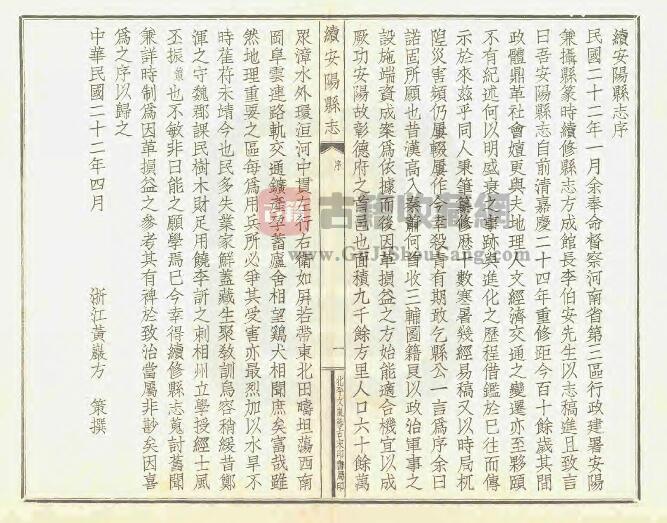 續安陽縣志序
民國二十二年一月余奉命督察河南省第三區行政建署安陽
兼攝縣篆時續修縣志方成館長李伯安先生以志稿進且致言
曰吾安陽縣志自前清嘉慶二十四年重修距今百十餘歲其間
政體鼎革社會嬗更與夫地理人文經濟交通之變遷亦至夥頤
不有紀述何以明盛衰之事跡文進化之歷程借鑑於已往而傳
示於來茲乎同人秉筆纂修歷十數寒暑幾經易稿又以時局杌
隉災害頻仍屢輟屢作今幸殺青有期敢乞縣公一言爲序余曰
諾固所願也昔漢高入秦蕭何首收三輔圖籍良以政治軍事之
設施端資成案爲依據而後因革損益之方始能適合機宜以成
厥功安陽故彰德府之首邑也面積九千餘方里人口六十餘萬
續安陽縣志
序
一
北平文嵐簃古宋印書局印
眾漳水外環洹河中貫左行右衛如屏若帶東北田疇坦蕩西南
岡阜雲連路軌交通鑛產孕蓄廬舍相望鷄犬相聞庶矣富哉雖
然地理重要之區每爲用兵所必爭其受害亦最烈加以水旱不
時萑苻未靖今也民多失業家鮮蓋藏生聚敎訓烏容稍緩昔鄭
渾之守魏郡課民樹木財足用饒李訢之刺相州立學授經士風
丕振
也不敏非曰能之願學焉已今幸得續修縣志蒐討舊聞
兼詳時制爲因革損益之參考其有裨於致治當屬非尠矣因喜
爲之序以歸之
中華民國二十二年四月
浙江黃巖方
策撰
古籍收藏網
www.GuJiShouCang.com